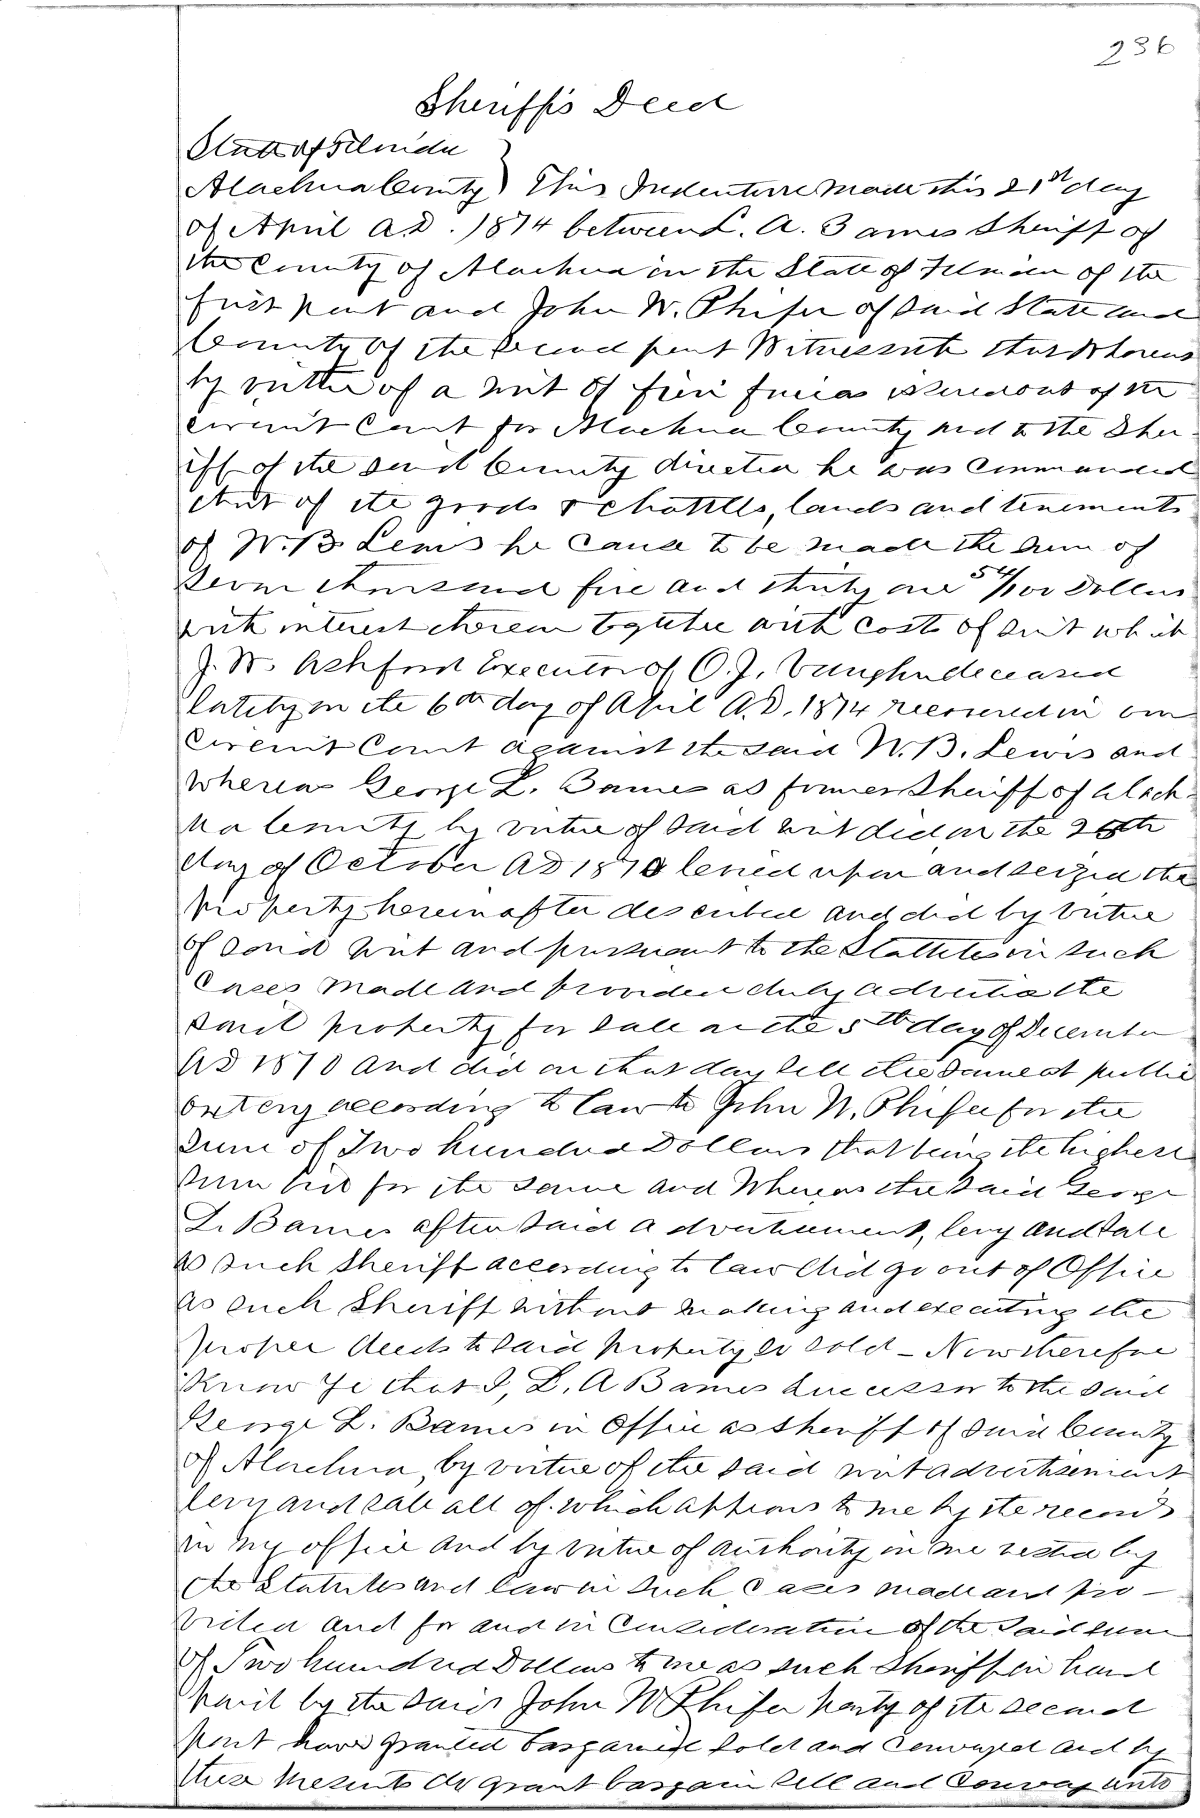 236
Sheriff's Deed
State of Florida
Alachua County } This Indenture made this 21st day
of April A.D. 1874 between L. A. Barnes Sheriff of
the County of Alachua in the State of Florida of the
first part and John W. Phifer of said State and
County of the second part Witnesseth that Whereas
by virtue of a writ of fieri facias issued out of the
circuit Court for Alachua County and to the Sher-
iff of the said County directed he was commanded
that of the goods & chattells, lands and tenements
of W. B. Lewis he cause to be made the sum of
Seven thousand five and thirty one 54/100 Dollars
with interest thereon together with costs of suit which
J. W. Ashford Executor of O. J. Vaughn deceased
lately on the 6th day of April A.D. 1874 recovered in our
Circuit Court against the said W. B. Lewis and
whereas George L. Barnes as former Sheriff of Alach-
ua County by virtue of said writ did on the 26th
day of October AD 1870 levied upon and seized the
property hereinafter described and did by virtue
of said writ and pursuant to the Statutes in such
Cases made and provided duly advertise the
said property for sale on the 5th day of December
AD 1870 and did on that day sell the same at public
outcry according to law to John W. Phifer for the
sum of Two hundred Dollars that being the highest
sum bid for the same and Whereas the said George
L. Barnes after said advertisement, levy and sale
as such Sheriff according to law did go out of Office
as such Sheriff without making and executing the
proper deeds to said property so sold – Now therefore
Know Ye that I, L. A Barnes successor to the said
George L. Barnes in Office as Sheriff of said County
of Alachua, by virtue of the said writ advertisement
levy and sale all of which appears to me by the records
in my office and by virtue of authority in me vested by
the Statutes and law in such Cases made and pro–
vided and for and in Consideration of the said sum
of Two hundred Dollars to me as such Sheriff in hand
paid by the said John W Phifer party of the second
part have granted bargained sold and conveyed and by
these presents do grant bargain sell and convey unto